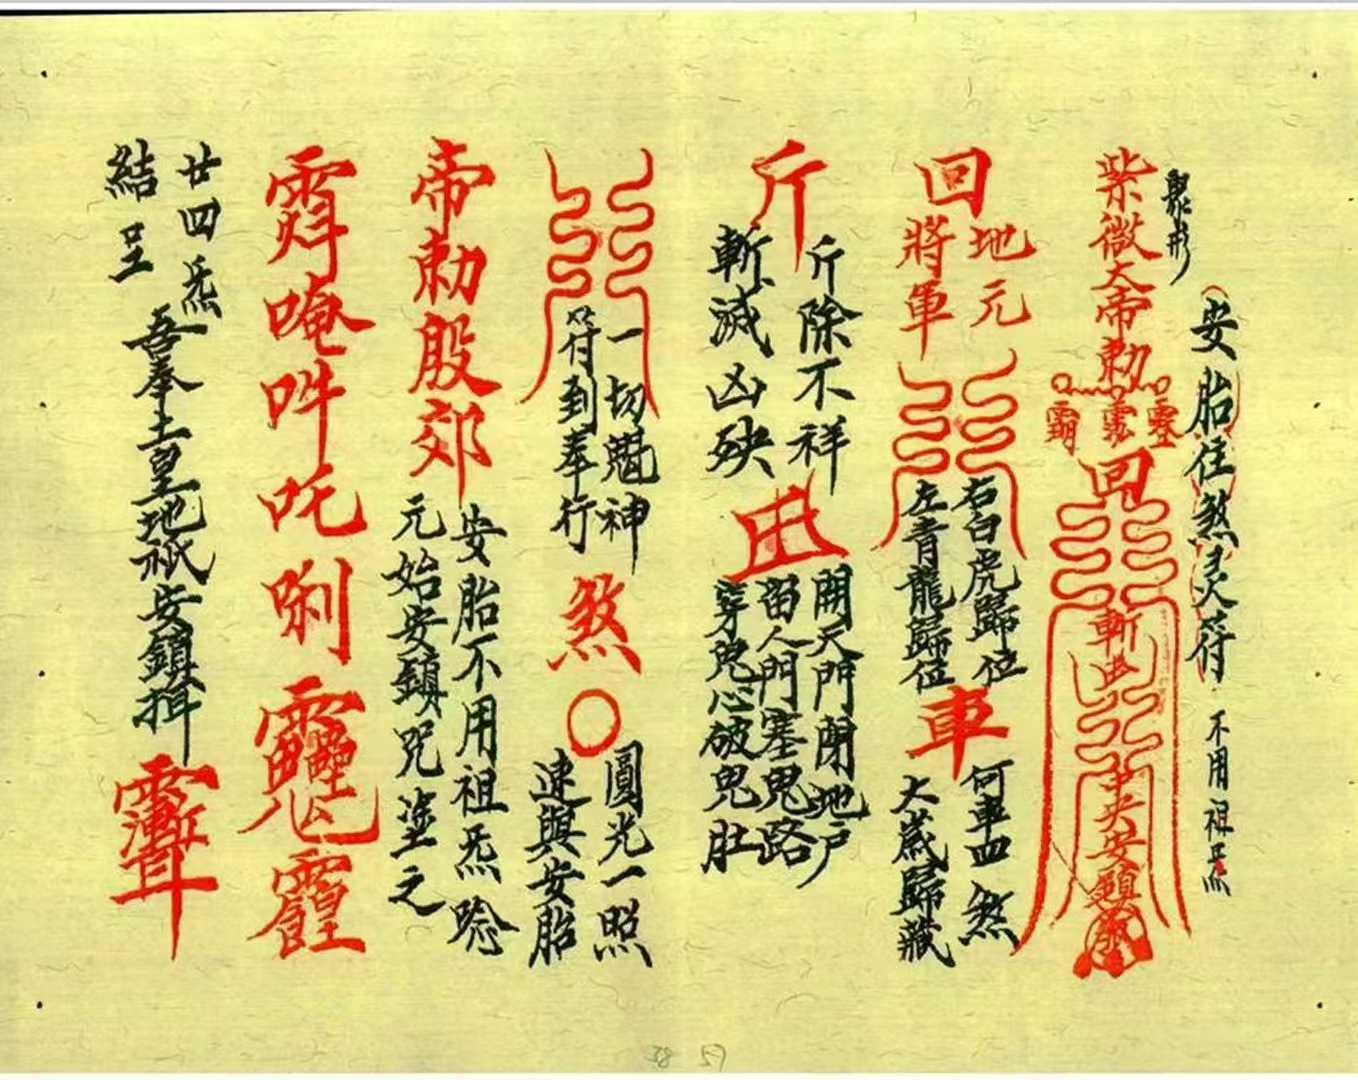 安胎住煞灵符 不用祖炁
聚形
紫微大帝勅
回
斬
中央安鎮
回
地元
將軍
右白虎歸位
左青龍歸位
車
何車四煞
大歲歸藏
斤
斤除不祥
斬滅凶殃
開天門閉地戶
留人門塞鬼路
穿鬼心破鬼肚
一切魈神
符到奉行
煞
圓光一照
速與安胎
帝勅殷郊
安胎不用祖炁唸
元始安鎮咒塗之
唵吽吒唎
廿四炁
結呈
吾奉土皇地祇安鎮揖
58 57